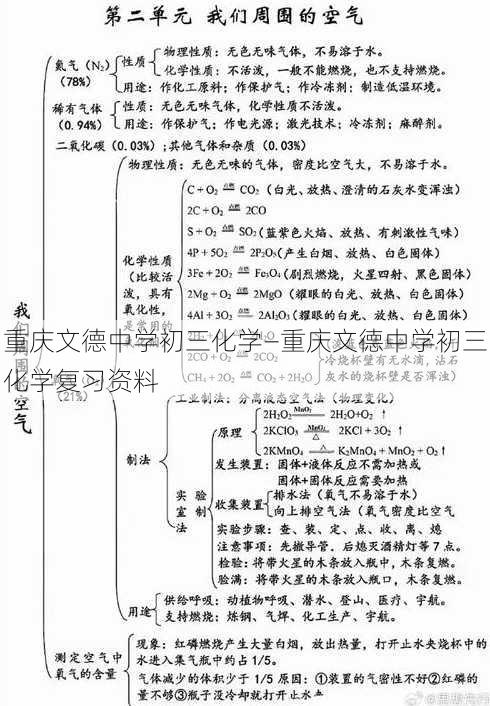 第二单元 我们周围的空气
氮气（N₂）
（78%）
性质
物理性质：无色无味气体，不易溶于水。
化学性质：不活泼，一般不能燃烧，也不支持燃烧。
用途：作化工原料；作保护气；作冷冻剂；制造低温环境。
稀有气体
（0.94%）
性质：无色无味气体，化学性质不活泼。
用途：作保护气；作电光源；激光技术；冷冻剂；麻醉剂。
二氧化碳（0.03%）;其他气体和杂质（0.03%）
物理性质：无色无味的气体，密度比空气大，不易溶于水。
化学性质
（比较活
泼，具有
氧化性，
是常用的
C＋O₂ 点燃 CO₂（白光、放热、澄清的石灰水变浑浊）
2C＋O₂ 点燃 2CO
S＋O₂ 点燃 SO₂（蓝紫色火焰、放热、有刺激性气味）
4P＋5O₂ 点燃 2P₂O₅（产生白烟、放热、白色固体）
3Fe＋2O₂ 点燃 Fe₃O₄（剧烈燃烧，火星四射、黑色固体）
2Mg＋O₂ 点燃 2MgO（耀眼的白光、放热、白色固体）
4Al＋3O₂ 点燃 2Al₂O₃（耀眼的白光、放热、白色固体）
重庆文德中学初三化学—重庆文德中学初三
化学复习资料
2CO＋O₂ 点燃 2CO₂
冷烧杯壁有无水滴，沾石
CH₄＋2O₂ 点燃 CO₂＋2H₂O
灰水的烧杯壁是否浑浊）
我们周围的空气
（21%）
制法
工业制法：分离液态空气法（物理变化）
实验
室制
法
原理
2H₂O₂ MnO₂ 2H₂O+O₂ ↑
2KClO₃ MnO₂ △ 2KCl＋3O₂ ↑
2KMnO₄ △ K₂MnO₄＋MnO₂＋O₂↑
发生装置：固体+液体反应不需加热或
固体+固体反应需要加热
收集装置
排水法（氧气不易溶于水）
向上排空气法（氧气密度比空气
实验步骤：查、装、定、点、收、离、熄
注意事项：先撤导管，后熄灭酒精灯等7点。
检验：将带火星的木条放入瓶中，木条复燃。
验满：将带火星的木条放入瓶口，木条复燃。
用途
供给呼吸：动植物呼吸、潜水、登山、医疗、宇航。
支持燃烧：炼钢、气焊、化工生产、宇航。
测定空气中
氧气的含量
现象：红磷燃烧产生大量白烟，放出热量，打开止水夹烧杯中的
水进入集气瓶中约占1/5。
气体减少的体积少于1/5原因：①装置的气密性不好②红磷的
量不够③瓶子没冷却就打开止水